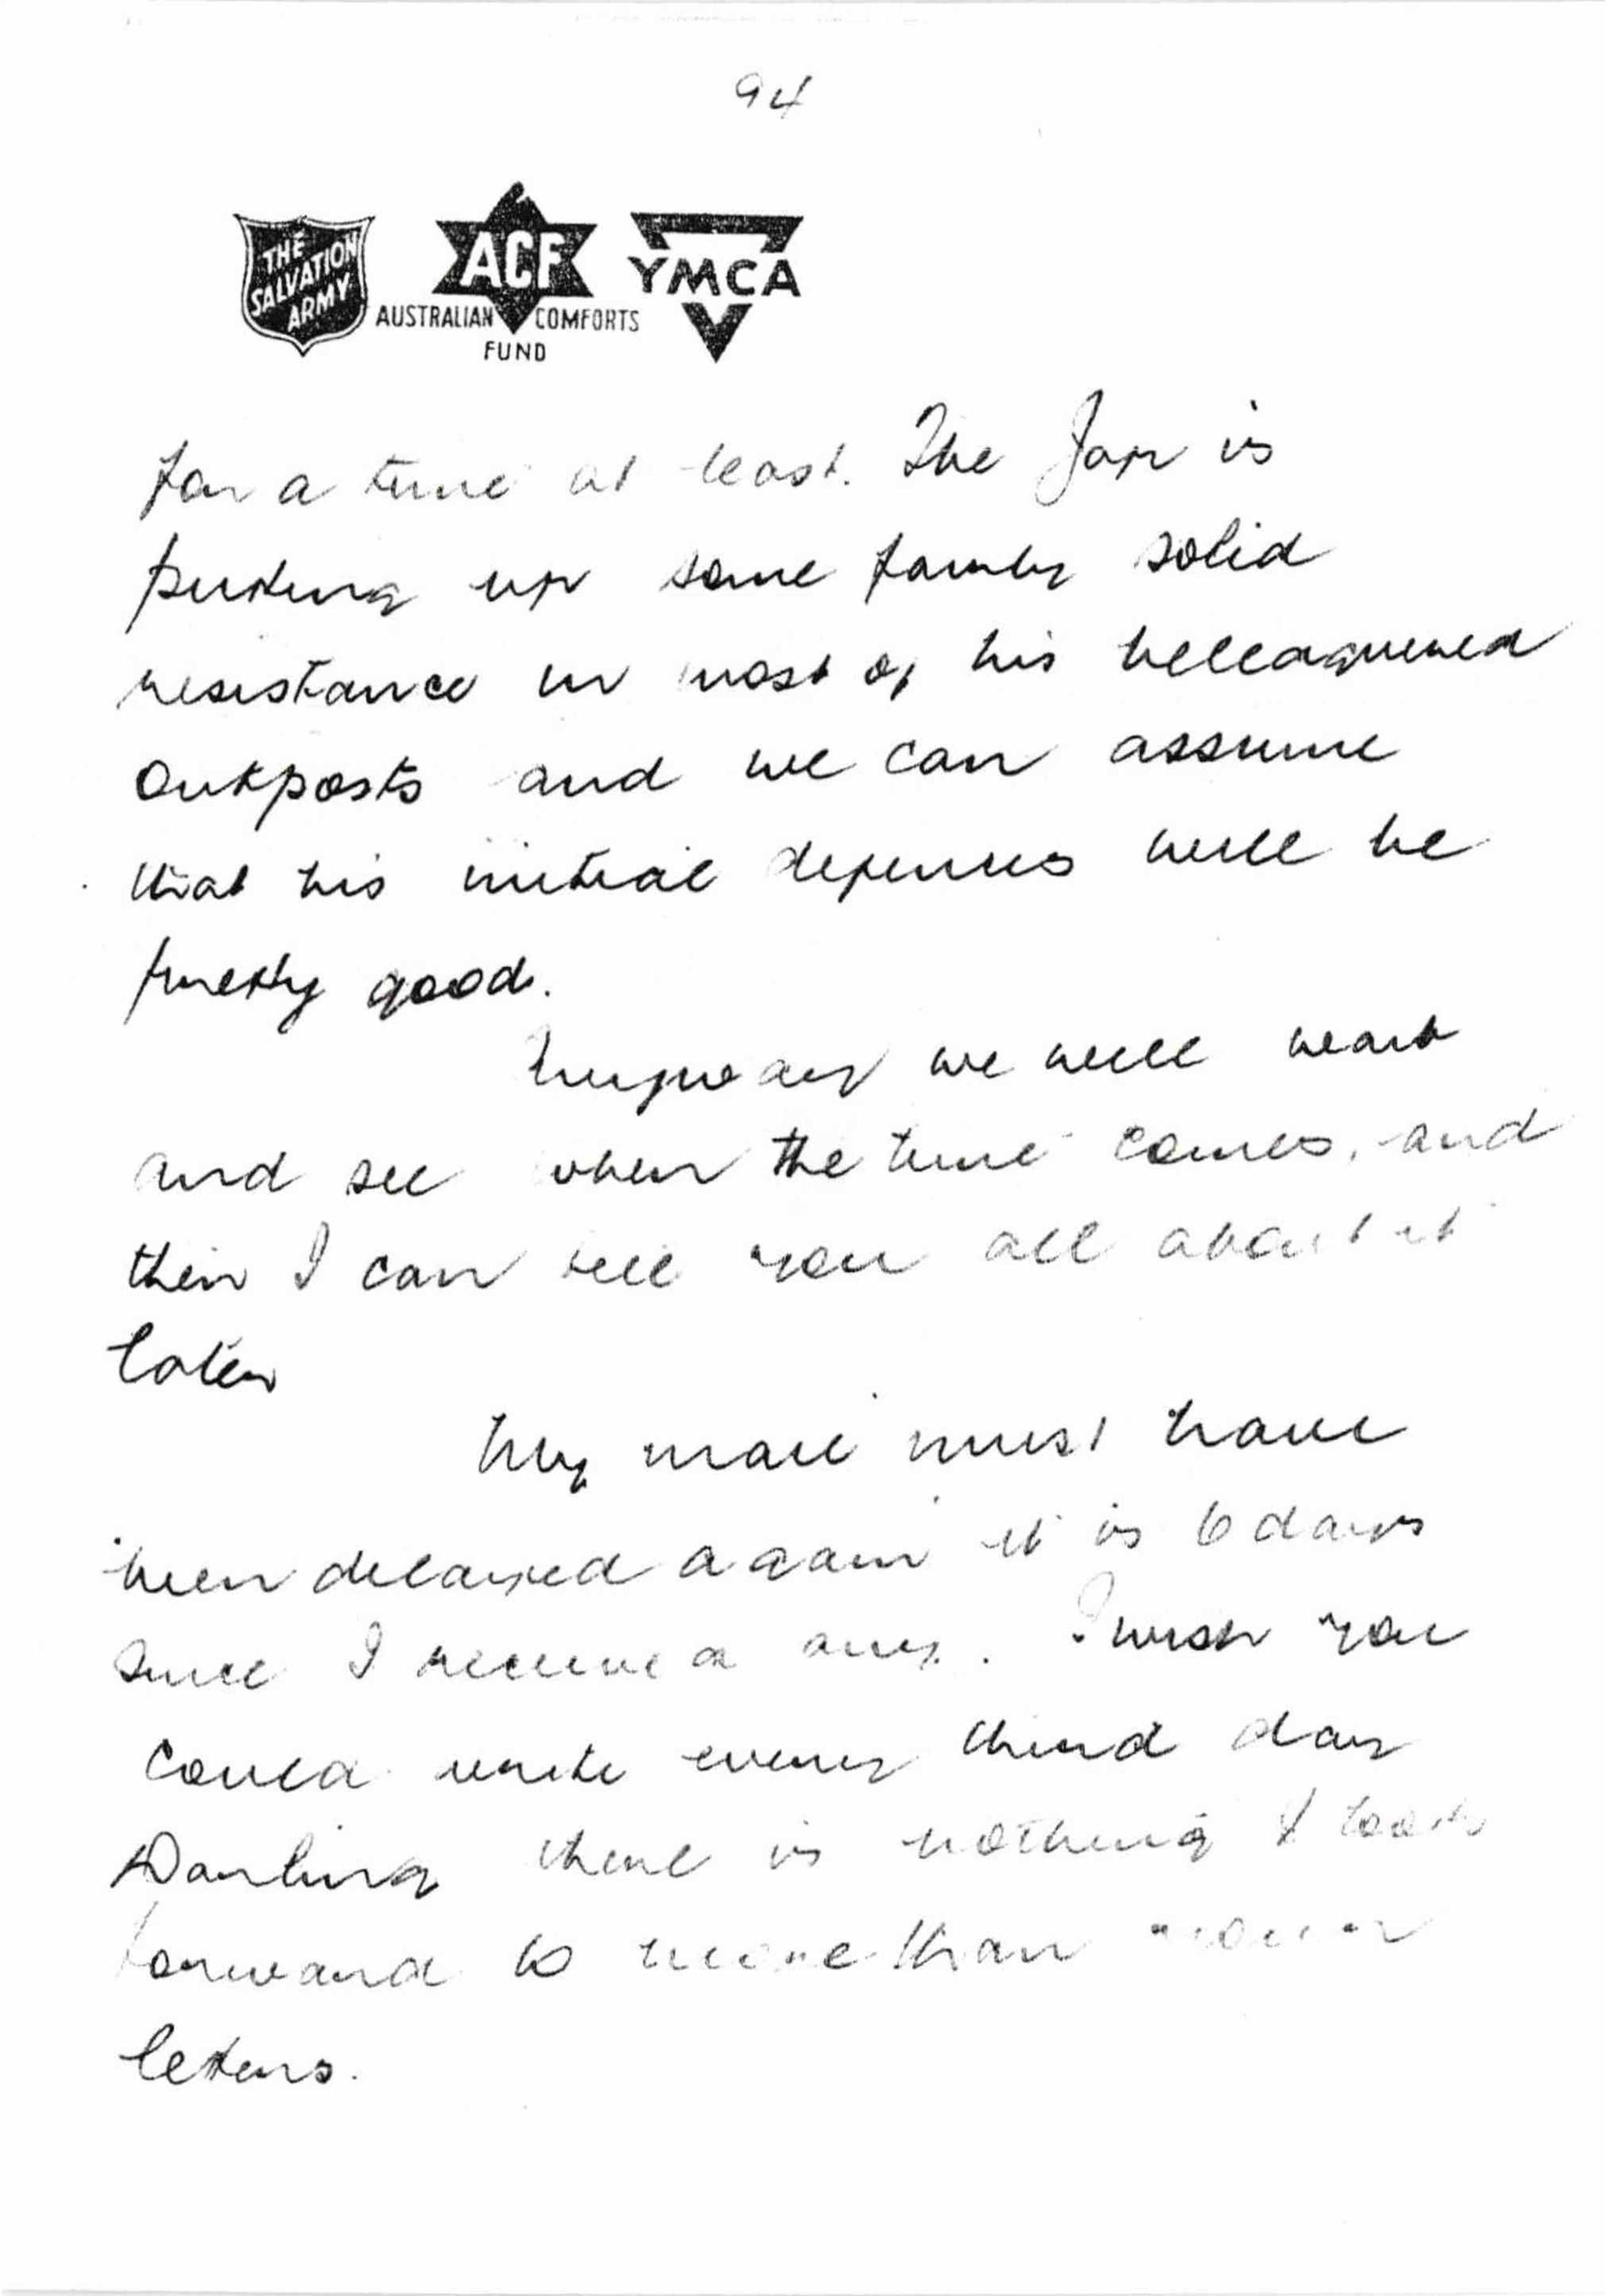 94
THE
SALVATION
ARMY
ACF
AUSTRALIAN COMFORTS
FUND
YMCA
for a time at least. The Jap is
putting up some fairly solid
resistance in most of his beleaguered
outposts and we can assume
that his initial defences will be
pretty good.
Anyway we will wait
and see when the time comes, and
then I can tell you all about it
later
My mail must have
been delayed again it is 6 days
since I received any. I wish you
could write every third day
Darling there is nothing I look
forward to more than your
letters.